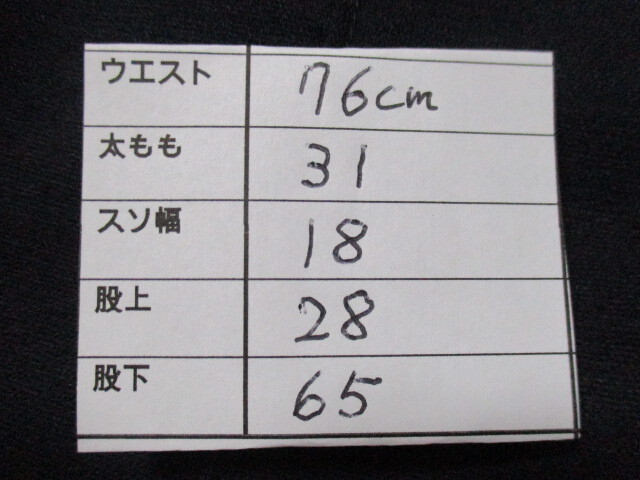 ウエスト 76cm
太もも 31
スソ幅 18
股上 28
股下 65